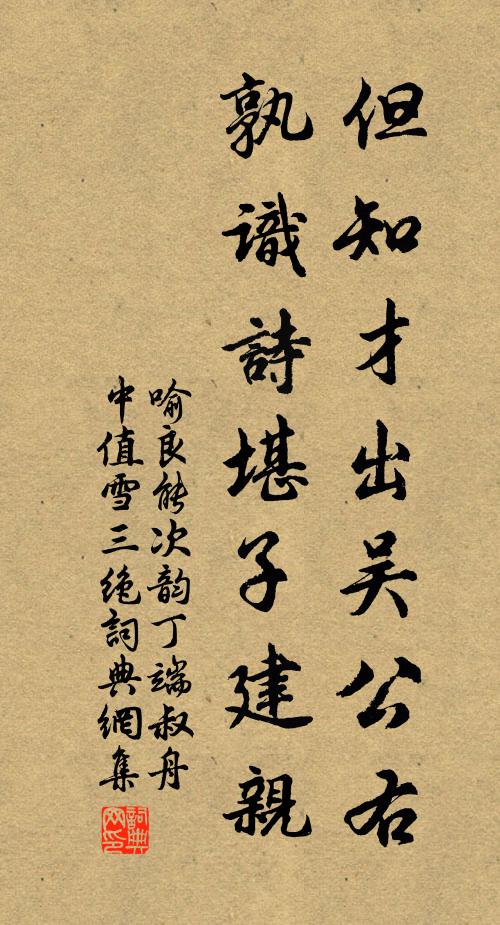 但知才出吴公右
孰識詩堪子建親
喻良能次韵丁端叔舟
中值雪三绝詞典網集
詞典
网印